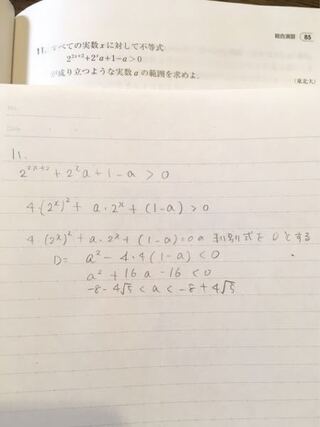 総合演習 85
11. すべての実数xに対して不等式
2^{2x+2}+2^x a+1-a>0
が成り立つような実数aの範囲を求めよ.
(東北大)
11.
2^{2x+2} + 2^x a + 1 - a > 0
4・(2^x)^2 + a・2^x + (1-a) > 0
4・(2^x)^2 + a・2^x + (1-a) = 0の 判別式を Dとする
D= a^2 - 4・4(1-a) < 0
a^2 + 16a - 16 < 0
-8-4√5 < a < -8+4√5